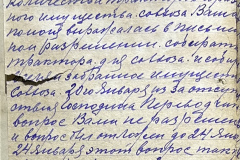 ного имущества совхоза Ваша
помощь выражалась в письмен
ном разрешении собирать
трактора для совхоза и собир
забранное имущество
совхоза. 20го Января из за отсут
ствия Господина Переводч
вопрос Вами не разрешен
и вопрос был отложен до 24 Янв
24 Января этот вопрос так